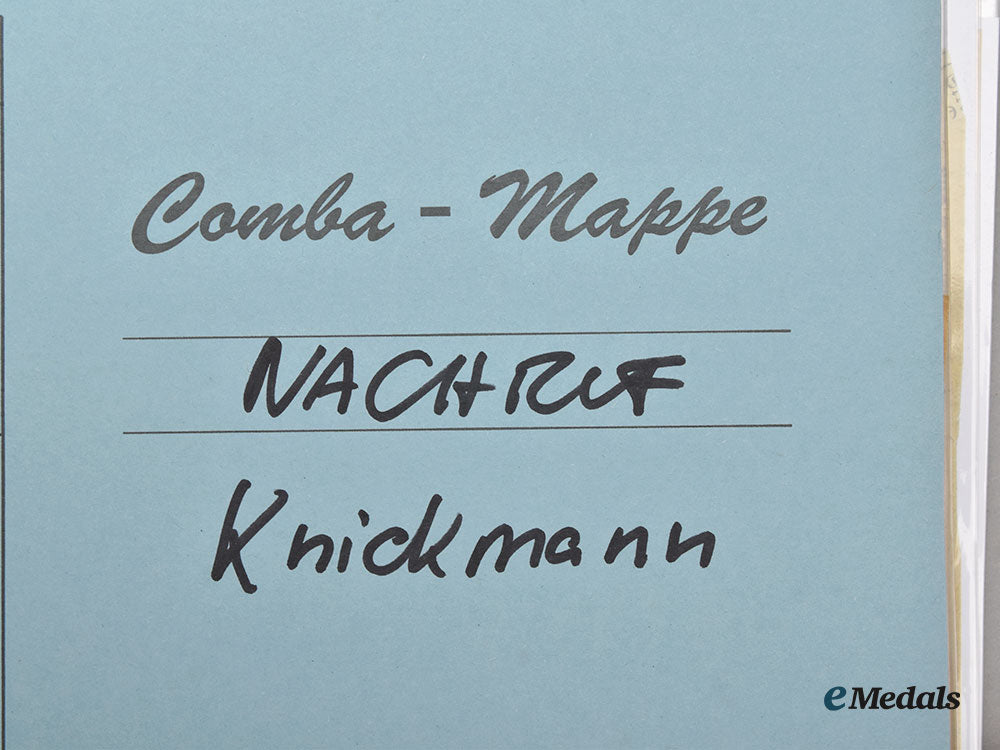 Comba - Mappe
NACHRUF
Knickmann
eMedals